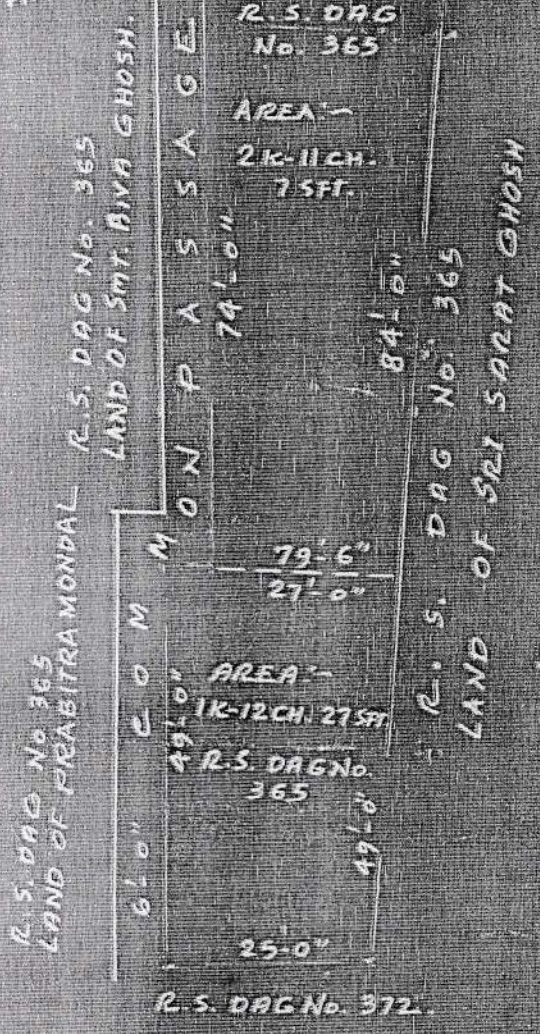 R. S. DAG No. 365
LAND OF PRABITRA MONDAL
R.S. DAG No. 365
LAND OF SMT. RIVA GHOSH.
6'-0"
COMMON PASSAGE
R.S. DAG
No. 365
AREA:-
2K-11CH.
7 SFT.
74'-0"
84'-0"
79'-6"
27'-0"
AREA:-
1K-12CH. 27 SFT.
R.S. DAG No.
365
49'-0"
49'-0"
25'-0"
R.S. DAG No. 372.
R. S. DAG No. 365
LAND OF SRI SARAT GHOSH